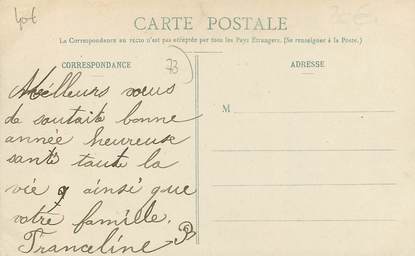 40€
CARTE POSTALE
La Correspondance au recto n'est pas acceptée par tous les Pays Étrangers. (Se renseigner à la Poste.)
CORRESPONDANCE
73
ADRESSE
Meilleurs vœus
de soutaite bonne
année heureuse
santé taute la
vie ainsi que
votre famille.
Franceline
M